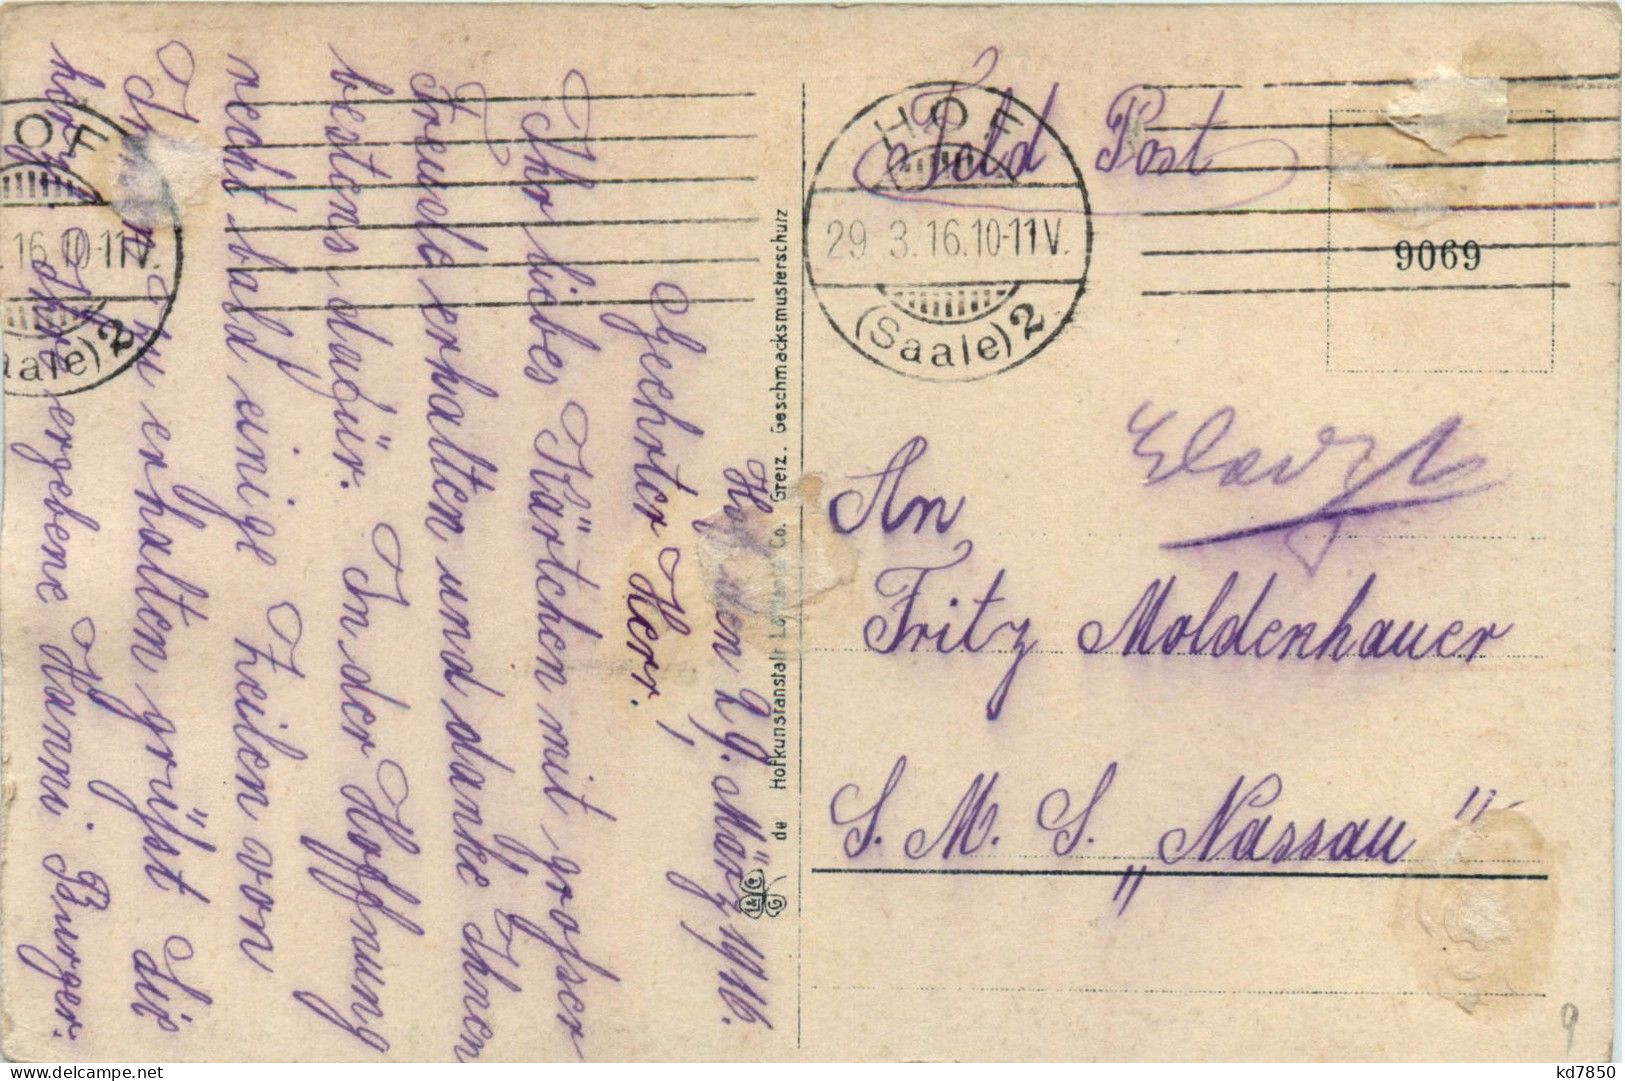 Hof, den 29. März 1916.
Geehrter Herr!
Ihr liebes Kärtchen mit grosser
Freude erhalten und danke Ihnen
bestens dafür. In der Hoffnung
recht bald einige Zeilen von
Ihnen zu erhalten grüsst Sie
Ihre ergebene Hanni Burger.
de Hofkunstanstalt Co. Greiz. Geschmacksmusterschutz
L&Co G
OF
16.10-11V.
aale) 2
Feld Post
HOF
29 3.16.10-11V.
(Saale) 2
9069
An
Fritz Moldenhauer
S. M. S. „Nassau"
9
kd7850